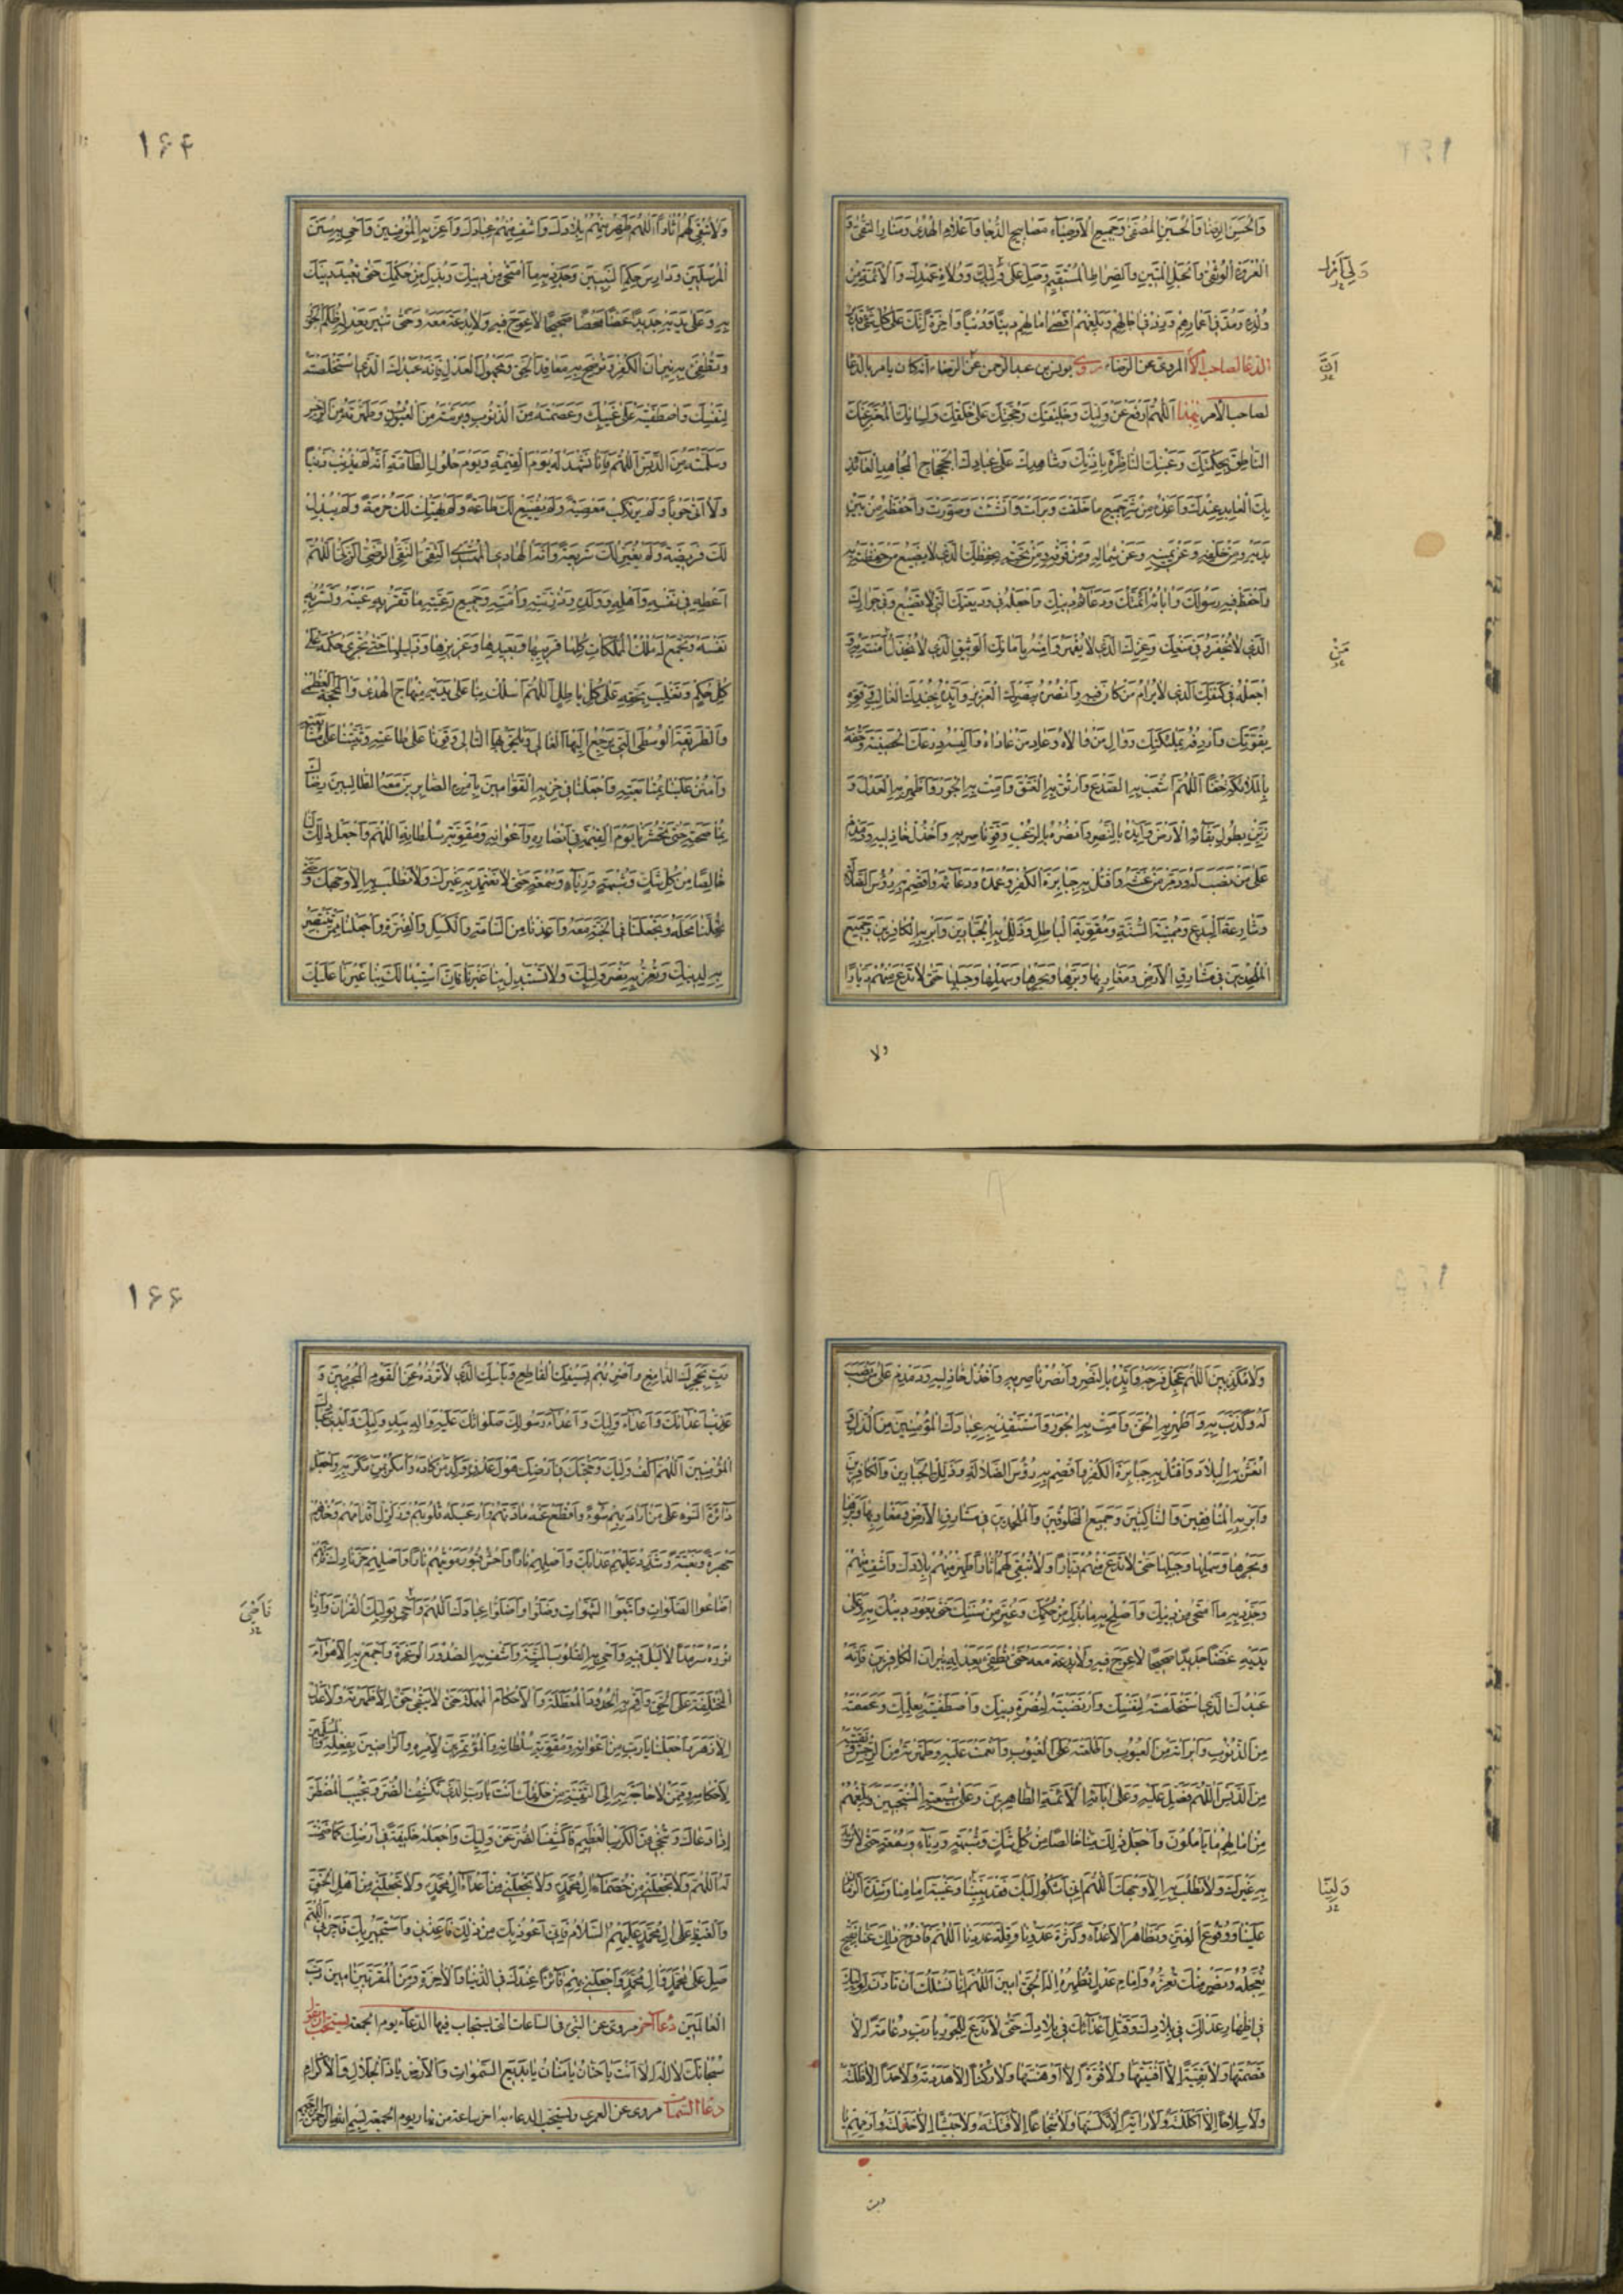 وَالْحَسَنِ الرِّضَا وَالْحُسَيْنِ الْمُصَفّى وَجَمِيعِ الْأَوْصِيَاءِ مَصَابِيحِ الدُّجَا وَأَعْلَامِ الْهُدَى وَمَنَارِ التُّقَى وَ
الْعُرْوَةِ الْوُثْقَى وَالْحَبْلِ الْمَتِينِ وَالصِّرَاطِ الْمُسْتَقِيمِ وَصَلِّ عَلَى وَلِيِّكَ وَوُلَاةِ عَهْدِكَ وَالْأَئِمَّةِ مِنْ
وُلْدِهِ وَمُدَّ فِي أَعْمَارِهِمْ وَزِدْ فِي آجَالِهِمْ وَبَلِّغْهُمْ أَقْصَى آمَالِهِمْ دِينًا وَدُنْيَا وَآخِرَةً إِنَّكَ عَلَى كُلِّ شَيْءٍ قَدِيرٌ
الدعا لصاحب الأمر المروي عن الرضا روى يونس بن عبد الرحمن عن الرضا انه كان يامر بالدعا
لصاحب الأمر بهذا اَللّٰهُمَّ ادْفَعْ عَنْ وَلِيِّكَ وَخَلِيفَتِكَ وَحُجَّتِكَ عَلَى خَلْقِكَ وَلِسَانِكَ الْمُعَبِّرِ عَنْكَ
النَّاطِقِ بِحِكْمَتِكَ وَعَيْنِكَ النَّاظِرَةِ بِإِذْنِكَ وَشَاهِدِكَ عَلَى عِبَادِكَ الْجَحْجَاحِ الْمُجَاهِدِ الْعَائِذِ
بِكَ الْعَابِدِ عِنْدَكَ وَأَعِذْهُ مِنْ شَرِّ جَمِيعِ مَا خَلَقْتَ وَبَرَأْتَ وَأَنْشَأْتَ وَصَوَّرْتَ وَاحْفَظْهُ مِنْ بَيْنِ
يَدَيْهِ وَمِنْ خَلْفِهِ وَعَنْ يَمِينِهِ وَعَنْ شِمَالِهِ وَمِنْ فَوْقِهِ وَمِنْ تَحْتِهِ بِحِفْظِكَ الَّذِي لَا يَضِيعُ مَنْ حَفِظْتَهُ بِهِ
وَاحْفَظْ فِيهِ رَسُولَكَ وَآبَاءَهُ أَئِمَّتَكَ وَدَعَائِمَ دِينِكَ وَاجْعَلْهُ فِي وَدِيعَتِكَ الَّتِي لَا تَضِيعُ وَفِي جِوَارِكَ
الَّذِي لَا يُخْفَرُ وَفِي مَنْعِكَ وَعِزِّكَ الَّذِي لَا يُقْهَرُ وَآمِنْهُ بِأَمَانِكَ الْوَثِيقِ الَّذِي لَا يُخْذَلُ مَنْ آمَنْتَهُ بِهِ وَ
اجْعَلْهُ فِي كَنَفِكَ الَّذِي لَا يُرَامُ مَنْ كَانَ فِيهِ وَانْصُرْهُ بِنَصْرِكَ الْعَزِيزِ وَأَيِّدْهُ بِجُنْدِكَ الْغَالِبِ وَقَوِّهِ
بِقُوَّتِكَ وَأَرْدِفْهُ بِمَلَائِكَتِكَ وَوَالِ مَنْ وَالَاهُ وَعَادِ مَنْ عَادَاهُ وَأَلْبِسْهُ دِرْعَكَ الْحَصِينَةَ وَحُفَّهُ
بِالْمَلَائِكَةِ حَفًّا اَللّٰهُمَّ اشْعَبْ بِهِ الصَّدْعَ وَارْتُقْ بِهِ الْفَتْقَ وَأَمِتْ بِهِ الْجَوْرَ وَأَظْهِرْ بِهِ الْعَدْلَ وَ
زَيِّنْ بِطُولِ بَقَائِهِ الْأَرْضَ وَأَيِّدْهُ بِالنَّصْرِ وَانْصُرْهُ بِالرُّعْبِ وَقَوِّ نَاصِرِيهِ وَاخْذُلْ خَاذِلِيهِ وَدَمْدِمْ
عَلَى مَنْ نَصَبَ لَهُ وَدَمِّرْ مَنْ غَشَّهُ وَاقْتُلْ بِهِ جَبَابِرَةَ الْكُفْرِ وَعُمُدَهُ وَدَعَائِمَهُ وَاقْصِمْ بِهِ رُؤُسَ الضَّلَالَةِ
وَشَارِعَةَ الْبِدَعِ وَمُمِيتَةَ السُّنَّةِ وَمُقَوِّيَةَ الْبَاطِلِ وَذَلِّلْ بِهِ الْجَبَّارِينَ وَأَبِرْ بِهِ الْكَافِرِينَ وَجَمِيعَ
الْمُلْحِدِينَ فِي مَشَارِقِ الْأَرْضِ وَمَغَارِبِهَا وَبَرِّهَا وَبَحْرِهَا وَسَهْلِهَا وَجَبَلِهَا حَتَّى لَا تَدَعَ مِنْهُمْ دَيَّارًا
ولا
۱۶۴
وَلَا تُبْقِيَ لَهُمْ آثَارًا اَللّٰهُمَّ طَهِّرْ مِنْهُمْ بِلَادَكَ وَاشْفِ مِنْهُمْ عِبَادَكَ وَأَعِزَّ بِهِ الْمُؤْمِنِينَ وَأَحْيِ بِهِ سُنَنَ
الْمُرْسَلِينَ وَدَارِسَ حِكَمِ النَّبِيِّينَ وَجَدِّدْ بِهِ مَا امْتَحَى مِنْ دِينِكَ وَبُدِّلَ مِنْ حُكْمِكَ حَتَّى تُعِيدَ دِينَكَ
بِهِ وَعَلَى يَدَيْهِ جَدِيدًا غَضًّا مَحْضًا صَحِيحًا لَا عِوَجَ فِيهِ وَلَا بِدْعَةَ مَعَهُ وَحَتَّى تُنِيرَ بِعَدْلِهِ ظُلَمَ الْجَوْرِ
وَتُطْفِئَ بِهِ نِيرَانَ الْكُفْرِ وَتُوضِحَ بِهِ مَعَاقِدَ الْحَقِّ وَمَجْهُولَ الْعَدْلِ فَإِنَّهُ عَبْدُكَ الَّذِي اسْتَخْلَصْتَهُ
لِنَفْسِكَ وَاصْطَفَيْتَهُ عَلَى غَيْبِكَ وَعَصَمْتَهُ مِنَ الذُّنُوبِ وَبَرَّأْتَهُ مِنَ الْعُيُوبِ وَطَهَّرْتَهُ مِنَ الرِّجْسِ
وَسَلَّمْتَهُ مِنَ الدَّنَسِ اَللّٰهُمَّ فَإِنَّا نَشْهَدُ لَهُ يَوْمَ الْقِيٰمَةِ وَيَوْمَ حُلُولِ الطَّامَّةِ أَنَّهُ لَمْ يُذْنِبْ ذَنْبًا
وَلَا أَتَى حَوْبًا وَلَمْ يَرْتَكِبْ مَعْصِيَةً وَلَمْ يُضَيِّعْ لَكَ طَاعَةً وَلَمْ يَهْتِكْ لَكَ حُرْمَةً وَلَمْ يُبَدِّلْ
لَكَ فَرِيضَةً وَلَمْ يُغَيِّرْ لَكَ شَرِيعَةً وَأَنَّهُ الْهَادِي الْمُهْتَدِي التَّقِيُّ النَّقِيُّ الرَّضِيُّ الزَّكِيُّ اَللّٰهُمَّ
أَعْطِهِ فِي نَفْسِهِ وَأَهْلِهِ وَوَلَدِهِ وَذُرِّيَّتِهِ وَأُمَّتِهِ وَجَمِيعِ رَعِيَّتِهِ مَا تُقِرُّ بِهِ عَيْنَهُ وَتَسُرُّ بِهِ
نَفْسَهُ وَتَجْمَعُ لَهُ مُلْكَ الْمَمْلَكَاتِ كُلِّهَا قَرِيبِهَا وَبَعِيدِهَا وَعَزِيزِهَا وَذَلِيلِهَا حَتَّى تُجْرِيَ حُكْمَهُ عَلَى
كُلِّ حُكْمٍ وَتَغْلِبَ بِحَقِّهِ عَلَى كُلِّ بَاطِلٍ اَللّٰهُمَّ اسْلُكْ بِنَا عَلَى يَدَيْهِ مِنْهَاجَ الْهُدَى وَالْمَحَجَّةَ الْعُظْمَى
وَالطَّرِيقَةَ الْوُسْطَى الَّتِي يَرْجِعُ إِلَيْهَا الْغَالِي وَيَلْحَقُ بِهَا التَّالِي وَقَوِّنَا عَلَى طَاعَتِهِ وَثَبِّتْنَا عَلَى مُشَايَعَتِهِ
وَامْنُنْ عَلَيْنَا بِمُتَابَعَتِهِ وَاجْعَلْنَا فِي حِزْبِهِ الْقَوَّامِينَ بِأَمْرِهِ الصَّابِرِينَ مَعَهُ الطَّالِبِينَ رِضَاكَ
بِمُنَاصَحَتِهِ حَتَّى تَحْشُرَنَا يَوْمَ الْقِيٰمَةِ فِي أَنْصَارِهِ وَأَعْوَانِهِ وَمُقَوِّيَةِ سُلْطَانِهِ اَللّٰهُمَّ وَاجْعَلْ ذٰلِكَ لَنَا
خَالِصًا مِنْ كُلِّ شَكٍّ وَشُبْهَةٍ وَرِيَاءٍ وَسُمْعَةٍ حَتَّى لَا نَعْتَمِدَ بِهِ غَيْرَكَ وَلَا نَطْلُبَ بِهِ إِلَّا وَجْهَكَ وَحَتَّى
تُحِلَّنَا مَحَلَّهُ وَتَجْعَلَنَا فِي الْجَنَّةِ مَعَهُ وَأَعِذْنَا مِنَ السَّأْمَةِ وَالْكَسَلِ وَالْفَتْرَةِ وَاجْعَلْنَا مِمَّنْ تَنْتَصِرُ
بِهِ لِدِينِكَ وَتُعِزُّ بِهِ نَصْرَ وَلِيِّكَ وَلَا تَسْتَبْدِلْ بِنَا غَيْرَنَا فَإِنَّ اسْتِبْدَالَكَ بِنَا غَيْرَنَا عَلَيْكَ
وَلَا مُكَذِّبِينَ اَللّٰهُمَّ عَجِّلْ فَرَجَهُ وَأَيِّدْهُ بِالنَّصْرِ وَانْصُرْ نَاصِرِيهِ وَاخْذُلْ خَاذِلِيهِ وَدَمْدِمْ عَلَى مَنْ نَصَبَ
لَهُ وَكَذَّبَ بِهِ وَأَظْهِرْ بِهِ الْحَقَّ وَأَمِتْ بِهِ الْجَوْرَ وَاسْتَنْقِذْ بِهِ عِبَادَكَ الْمُؤْمِنِينَ مِنَ الذُّلِّ وَ
انْعَشْ بِهِ الْبِلَادَ وَاقْتُلْ بِهِ جَبَابِرَةَ الْكُفْرِ وَاقْصِمْ بِهِ رُؤُسَ الضَّلَالَةِ وَذَلِّلْ بِهِ الْجَبَّارِينَ وَالْكَافِرِينَ
وَأَبِرْ بِهِ الْمُنَافِقِينَ وَالنَّاكِثِينَ وَجَمِيعَ الْمُخَالِفِينَ وَالْمُلْحِدِينَ فِي مَشَارِقِ الْأَرْضِ وَمَغَارِبِهَا وَبَرِّهَا
وَبَحْرِهَا وَسَهْلِهَا وَجَبَلِهَا حَتَّى لَا تَدَعَ مِنْهُمْ دَيَّارًا وَلَا تُبْقِيَ لَهُمْ آثَارًا وَطَهِّرْ مِنْهُمْ بِلَادَكَ وَاشْفِ مِنْهُمْ
وَجَدِّدْ بِهِ مَا امْتَحَى مِنْ دِينِكَ وَأَصْلِحْ بِهِ مَا بُدِّلَ مِنْ حُكْمِكَ وَغُيِّرَ مِنْ سُنَّتِكَ حَتَّى يَعُودَ دِينُكَ بِهِ وَعَلَى
يَدَيْهِ غَضًّا جَدِيدًا صَحِيحًا لَا عِوَجَ فِيهِ وَلَا بِدْعَةَ مَعَهُ حَتَّى تُطْفِئَ بِعَدْلِهِ نِيرَانَ الْكَافِرِينَ فَإِنَّهُ
عَبْدُكَ الَّذِي اسْتَخْلَصْتَهُ لِنَفْسِكَ وَارْتَضَيْتَهُ لِنُصْرَةِ دِينِكَ وَاصْطَفَيْتَهُ بِعِلْمِكَ وَعَصَمْتَهُ
مِنَ الذُّنُوبِ وَأَبْرَأْتَهُ مِنَ الْعُيُوبِ وَأَطْلَعْتَهُ عَلَى الْغُيُوبِ وَأَنْعَمْتَ عَلَيْهِ وَطَهَّرْتَهُ مِنَ الرِّجْسِ وَنَقَّيْتَهُ
مِنَ الدَّنَسِ اَللّٰهُمَّ فَصَلِّ عَلَيْهِ وَعَلَى آبَائِهِ الْأَئِمَّةِ الطَّاهِرِينَ وَعَلَى شِيعَتِهِ الْمُنْتَجَبِينَ وَبَلِّغْهُمْ
مِنْ آمَالِهِمْ مَا يَأْمُلُونَ وَاجْعَلْ ذٰلِكَ مِنَّا خَالِصًا مِنْ كُلِّ شَكٍّ وَشُبْهَةٍ وَرِيَاءٍ وَسُمْعَةٍ حَتَّى لَا نُرِيدَ
بِهِ غَيْرَكَ وَلَا نَطْلُبَ بِهِ إِلَّا وَجْهَكَ اَللّٰهُمَّ إِنَّا نَشْكُوا إِلَيْكَ فَقْدَ نَبِيِّنَا وَغَيْبَةَ إِمَامِنَا وَشِدَّةَ الزَّمَانِ
عَلَيْنَا وَوُقُوعَ الْفِتَنِ وَتَظَاهُرَ الْأَعْدَاءِ وَكَثْرَةَ عَدُوِّنَا وَقِلَّةَ عَدَدِنَا اَللّٰهُمَّ فَافْرُجْ ذٰلِكَ عَنَّا بِفَتْحٍ
تُعَجِّلُهُ وَنَصْرٍ مِنْكَ تُعِزُّهُ وَإِمَامِ عَدْلٍ تُظْهِرُهُ إِلٰهَ الْحَقِّ آمِينَ اَللّٰهُمَّ إِنَّا نَسْئَلُكَ أَنْ تَأْذَنَ لِوَلِيِّكَ
فِي إِظْهَارِ عَدْلِكَ فِي بِلَادِكَ وَقَتْلِ أَعْدَائِكَ فِي بِلَادِكَ حَتَّى لَا تَدَعَ لِلْجَوْرِ يَا رَبِّ دِعَامَةً إِلَّا
قَصَمْتَهَا وَلَا بَقِيَّةً إِلَّا أَفْنَيْتَهَا وَلَا قُوَّةً إِلَّا أَوْهَنْتَهَا وَلَا رُكْنًا إِلَّا هَدَدْتَهُ وَلَا حَدًّا إِلَّا فَلَلْتَهُ
وَلَا سِلَاحًا إِلَّا أَكْلَلْتَهُ وَلَا رَايَةً إِلَّا نَكَّسْتَهَا وَلَا شُجَاعًا إِلَّا قَتَلْتَهُ وَلَا جَيْشًا إِلَّا خَذَلْتَهُ وَارْمِهِمْ يَا
۱۶۶
رَبِّ بِحَجَرِكَ الدَّامِغِ وَاضْرِبْهُمْ بِسَيْفِكَ الْقَاطِعِ وَبَأْسِكَ الَّذِي لَا تَرُدُّهُ عَنِ الْقَوْمِ الْمُجْرِمِينَ وَ
عَذِّبْ أَعْدَائَكَ وَأَعْدَاءَ وَلِيِّكَ وَأَعْدَاءَ رَسُولِكَ صَلَوَاتُكَ عَلَيْهِ وَآلِهِ بِيَدِ وَلِيِّكَ وَأَيْدِي عِبَادِكَ
الْمُؤْمِنِينَ اَللّٰهُمَّ اكْفِ وَلِيَّكَ وَحُجَّتَكَ فِي أَرْضِكَ هَوْلَ عَدُوِّهِ وَكِدْ مَنْ كَادَهُ وَامْكُرْ بِمَنْ مَكَرَ بِهِ وَاجْعَلْ
دَائِرَةَ السَّوْءِ عَلَى مَنْ أَرَادَ بِهِ سُوءً وَاقْطَعْ عَنْهُ مَادَّتَهُمْ وَأَرْعِبْ لَهُ قُلُوبَهُمْ وَزَلْزِلْ أَقْدَامَهُمْ وَخُذْهُمْ
جَهْرَةً وَبَغْتَةً وَشَدِّدْ عَلَيْهِمْ عَذَابَكَ وَأَصْلِهِمْ نَارًا وَاحْشُ قُبُورَ مَوْتَاهُمْ نَارًا وَأَصْلِهِمْ حَرَّ نَارِكَ فَإِنَّهُمْ
أَضَاعُوا الصَّلَوَاتِ وَاتَّبَعُوا الشَّهَوَاتِ وَضَلُّوا وَأَضَلُّوا عِبَادَكَ اَللّٰهُمَّ وَأَحْيِ بِوَلِيِّكَ الْقُرْآنَ وَأَرِنَا
نُورَهُ سَرْمَدًا لَا لَيْلَ فِيهِ وَأَحْيِ بِهِ الْقُلُوبَ الْمَيِّتَةَ وَاشْفِ بِهِ الصُّدُورَ الْوَغِرَةَ وَاجْمَعْ بِهِ الْأَهْوَاءَ
الْمُخْتَلِفَةَ عَلَى الْحَقِّ وَأَقِمْ بِهِ الْحُدُودَ الْمُعَطَّلَةَ وَالْأَحْكَامَ الْمُهْمَلَةَ حَتَّى لَا يَبْقَى حَقٌّ إِلَّا ظَهَرَ وَلَا عَدْلٌ
إِلَّا زَهَرَ وَاجْعَلْنَا يَا رَبِّ مِنْ أَعْوَانِهِ وَمُقَوِّيَةِ سُلْطَانِهِ وَالْمُؤْتَمِرِينَ لِأَمْرِهِ وَالرَّاضِينَ بِفِعْلِهِ وَالْمُسَلِّمِينَ
لِأَحْكَامِهِ وَمِمَّنْ لَا حَاجَةَ بِهِ إِلَى التَّقِيَّةِ مِنْ خَلْقِكَ أَنْتَ يَا رَبِّ الَّذِي تَكْشِفُ الضُّرَّ وَتُجِيبُ الْمُضْطَرَّ
إِذَا دَعَاكَ وَتُنْجِي مِنَ الْكَرْبِ الْعَظِيمِ فَاكْشِفِ الضُّرَّ عَنْ وَلِيِّكَ وَاجْعَلْهُ خَلِيفَةً فِي أَرْضِكَ كَمَا ضَمِنْتَ
لَهُ اَللّٰهُمَّ وَلَا تَجْعَلْنِي مِنْ خُصَمَاءِ آلِ مُحَمَّدٍ وَلَا تَجْعَلْنِي مِنْ أَعْدَاءِ آلِ مُحَمَّدٍ وَلَا تَجْعَلْنِي مِنْ أَهْلِ الْحَنَقِ
وَالْغَيْظِ عَلَى آلِ مُحَمَّدٍ عَلَيْهِمُ السَّلَامُ فَإِنِّي أَعُوذُ بِكَ مِنْ ذٰلِكَ فَأَعِذْنِي وَأَسْتَجِيرُ بِكَ فَأَجِرْنِي اَللّٰهُمَّ
صَلِّ عَلَى مُحَمَّدٍ وَآلِ مُحَمَّدٍ وَاجْعَلْنِي بِهِمْ فَائِزًا عِنْدَكَ فِي الدُّنْيَا وَالْآخِرَةِ وَمِنَ الْمُقَرَّبِينَ آمِينَ رَبَّ
الْعَالَمِينَ دعا آخر مروي عن النبي في الساعات التي يستجاب فيها الدعاء يوم الجمعة
سُبْحَانَكَ لَا إِلٰهَ إِلَّا أَنْتَ يَا حَنَّانُ يَا مَنَّانُ يَا بَدِيعَ السَّمٰوَاتِ وَالْأَرْضِ يَا ذَا الْجَلَالِ وَالْإِكْرَامِ
دعاء السمات مروي عن العمري ويستحب الدعاء به آخر ساعة من نهار يوم الجمعة بسم الله الرحمن الرحيم